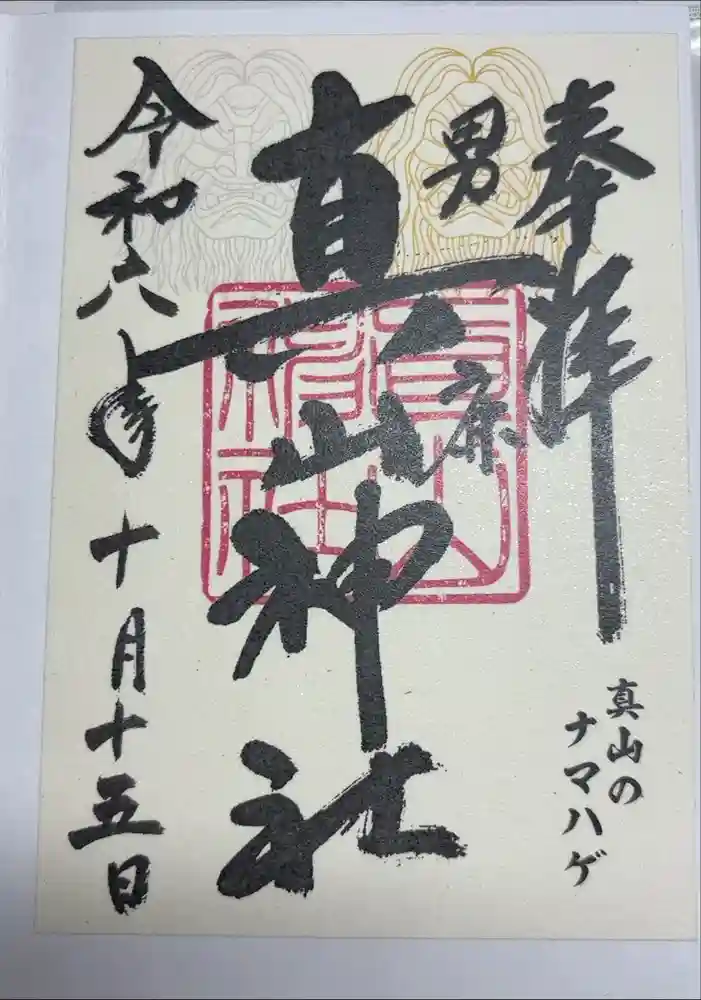 奉拝
男鹿
真山神社
令和六年十月十五日
真山の
ナマハゲ
真山神社